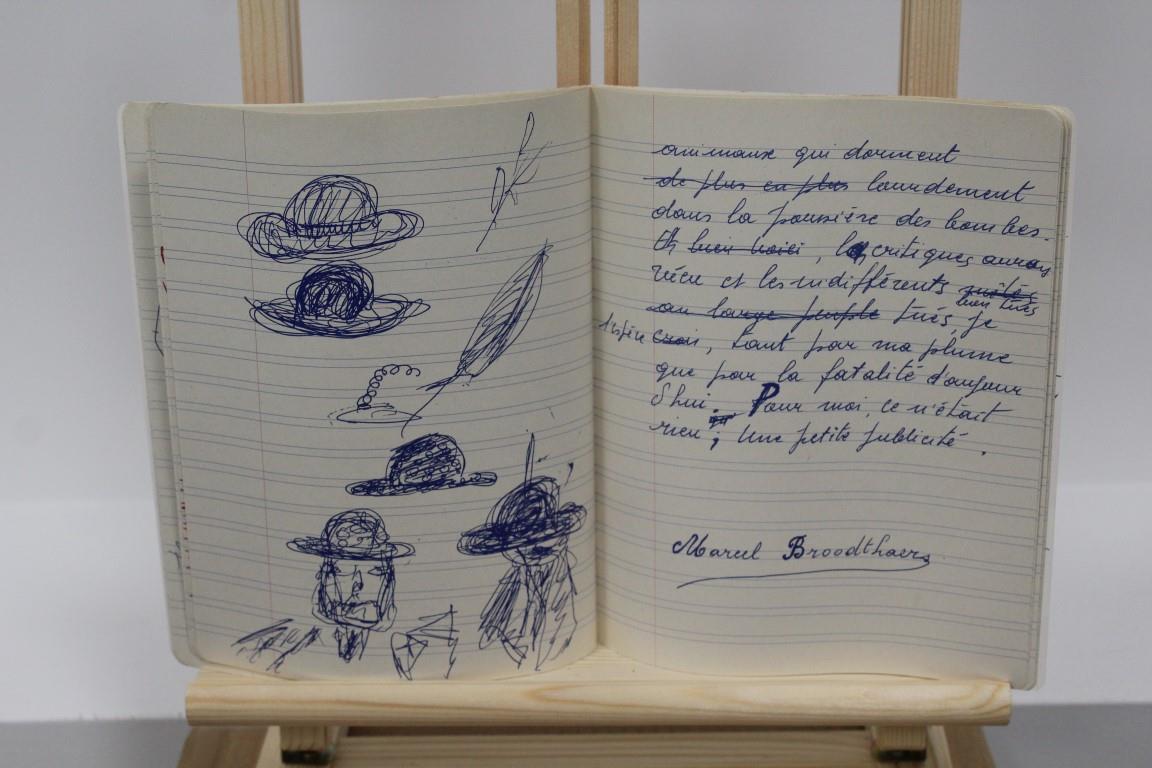 animaux qui dorment
de plus en plus lourdement
dans la poussière des bombes.
Et bien voici, les critiques aurons
vécu et les indifférents mêlés
bien tués
au large peuple tués, je
espère crois, tant par ma plume
que par la fatalité d'aujour
d'hui. Pour moi, ce n'était
rien ; Une petite publicité.
Marcel Broodthaers